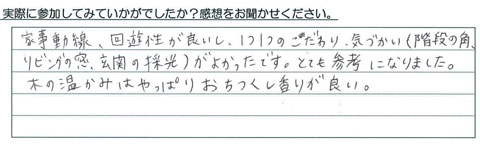 実際に参加してみていかがでしたか？感想をお聞かせください。
家事動線、回遊性が良いし、1つ1つのこだわり、気づかい（階段の角、
リビングの窓、玄関の採光）がよかったです。とても参考になりました。
木の温かみはやっぱりおちつくし香りが良い。